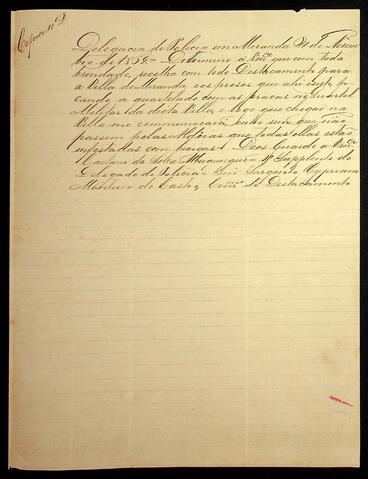 Copia nº 2
Delegacia de Policia em Miranda 21 de Novem
bro de 1862 = Determino a Vmcê que com toda
brevidade, recolha com todo Destacamento para
a Villa de Miranda os presos que ahi existe, fi
cando a quartelado com as pracas no Quartel
Militar da dicta Villa, e logo que chegar na
Villa me communicará, que não
passem pelas que todas ellas estão
infestadas com Deos Guarde a Vmcê
Caetano da Silva Albuquerque Supplente do
Delegado de Policia = Snr Sargento Cypriano
Monteiro de Castro, Comme do Destacamento